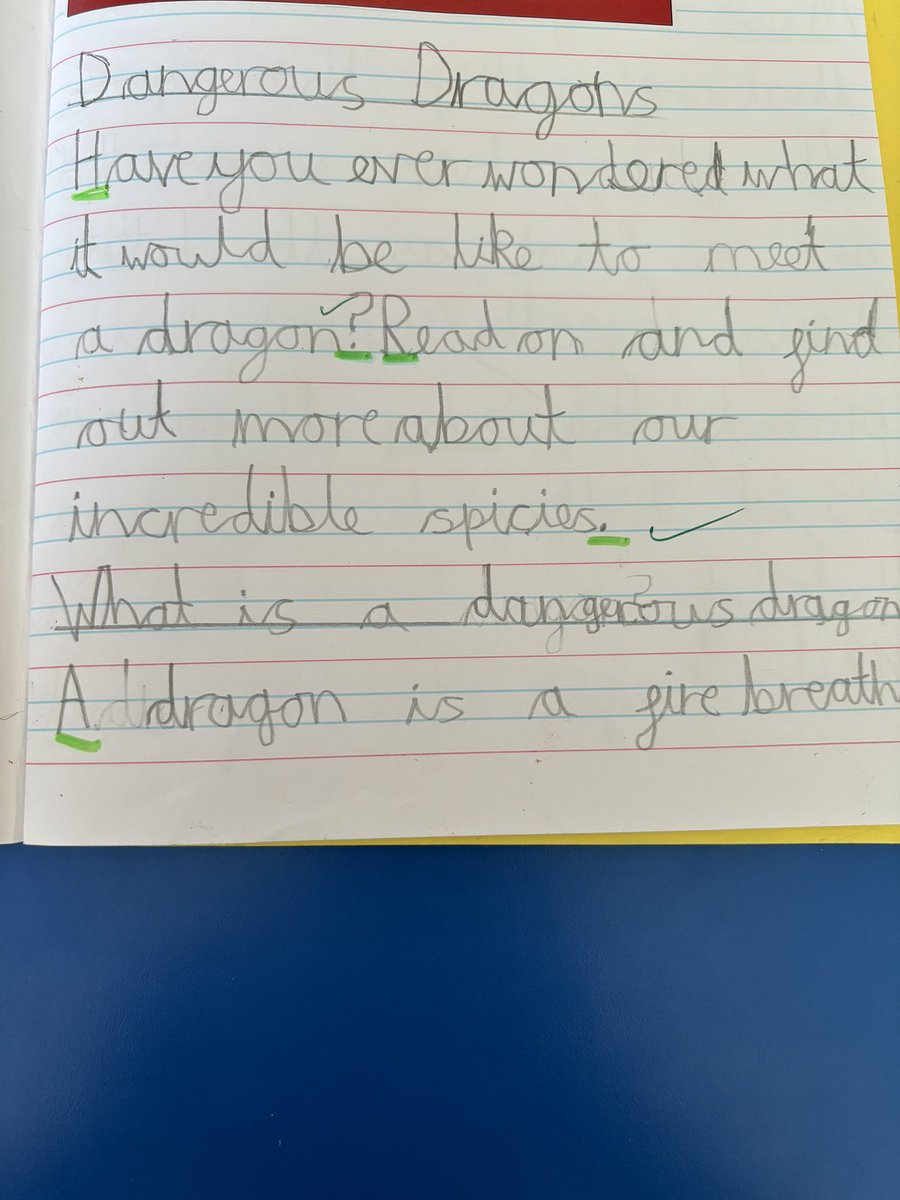 Dangerous Dragons
Have you ever wondered what
it would be like to meet
a dragon? Read on and find
out more about our
incredible spicies.
What is a dangerous dragon
A dragon is a fire breath